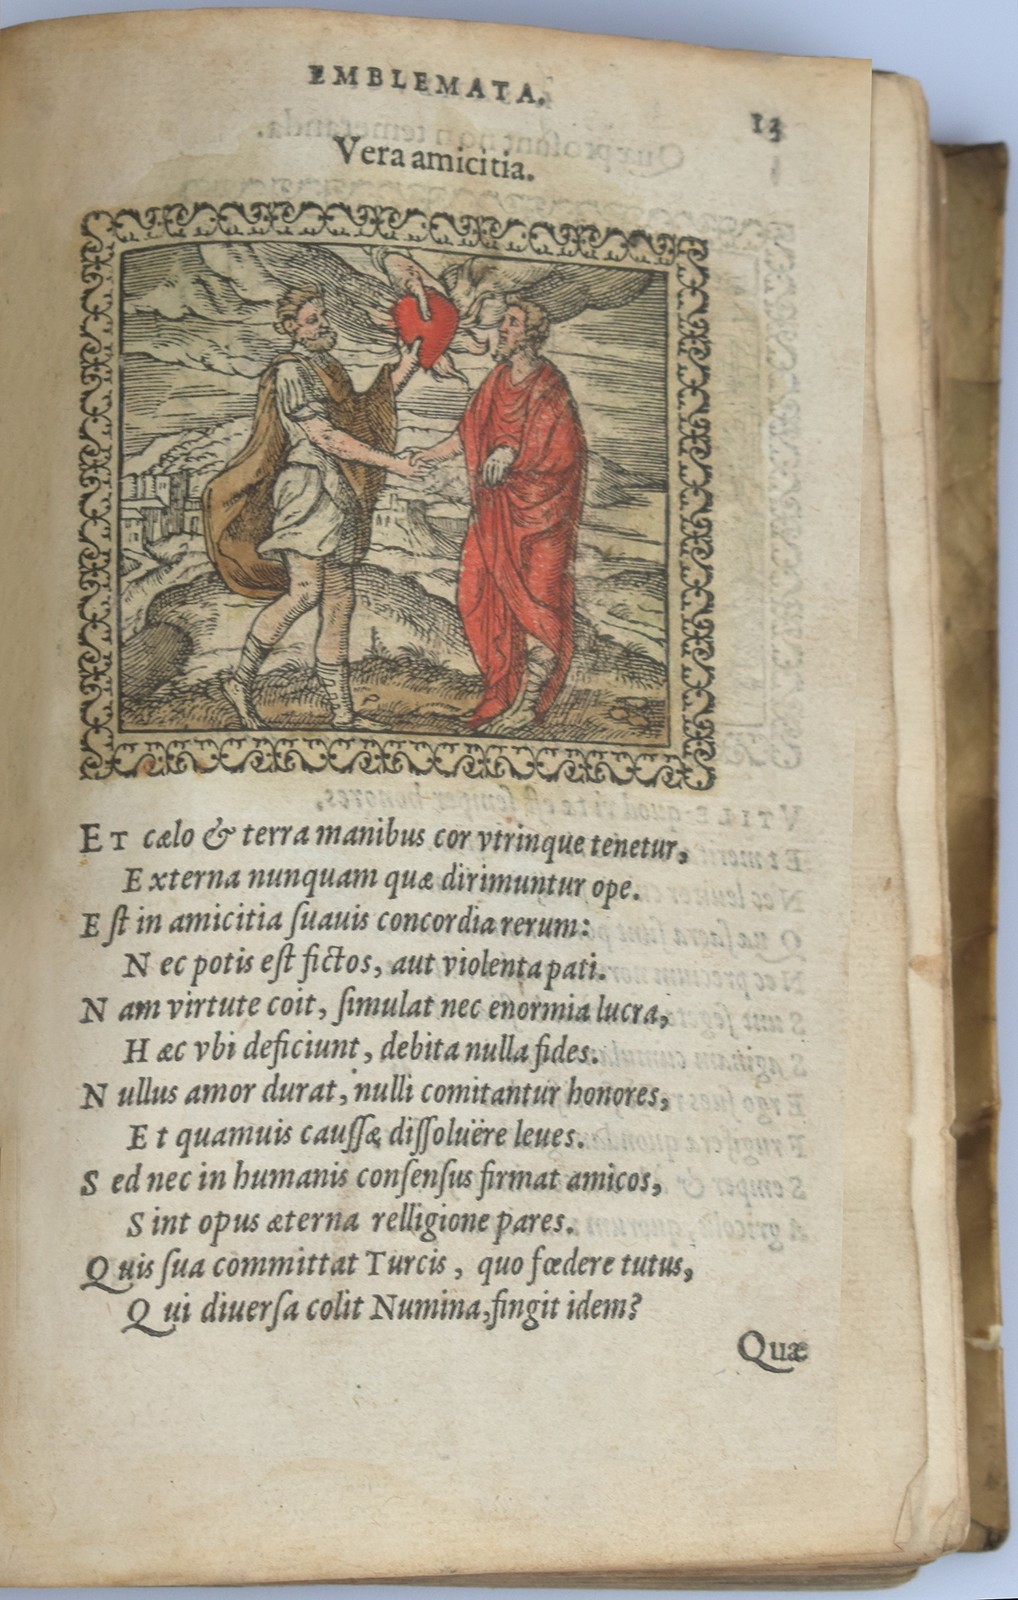 EMBLEMATA.
13
Vera amicitia.
ET cælo & terra manibus cor vtrinque tenetur,
Externa nunquam quæ dirimuntur ope.
Eſt in amicitia ſuauis concordia rerum:
Nec potis eſt fictos, aut violenta pati.
Nam virtute coit, ſimulat nec enormia lucra,
Hæc vbi deficiunt, debita nulla fides.
Nullus amor durat, nulli comitantur honores,
Et quamuis cauſſæ diſſoluëre leues.
Sed nec in humanis conſenſus firmat amicos,
Sint opus æterna relligione pares.
Quis ſua committat Turcis, quo fœdere tutus,
Qui diuerſa colit Numina, fingit idem?
Quæ